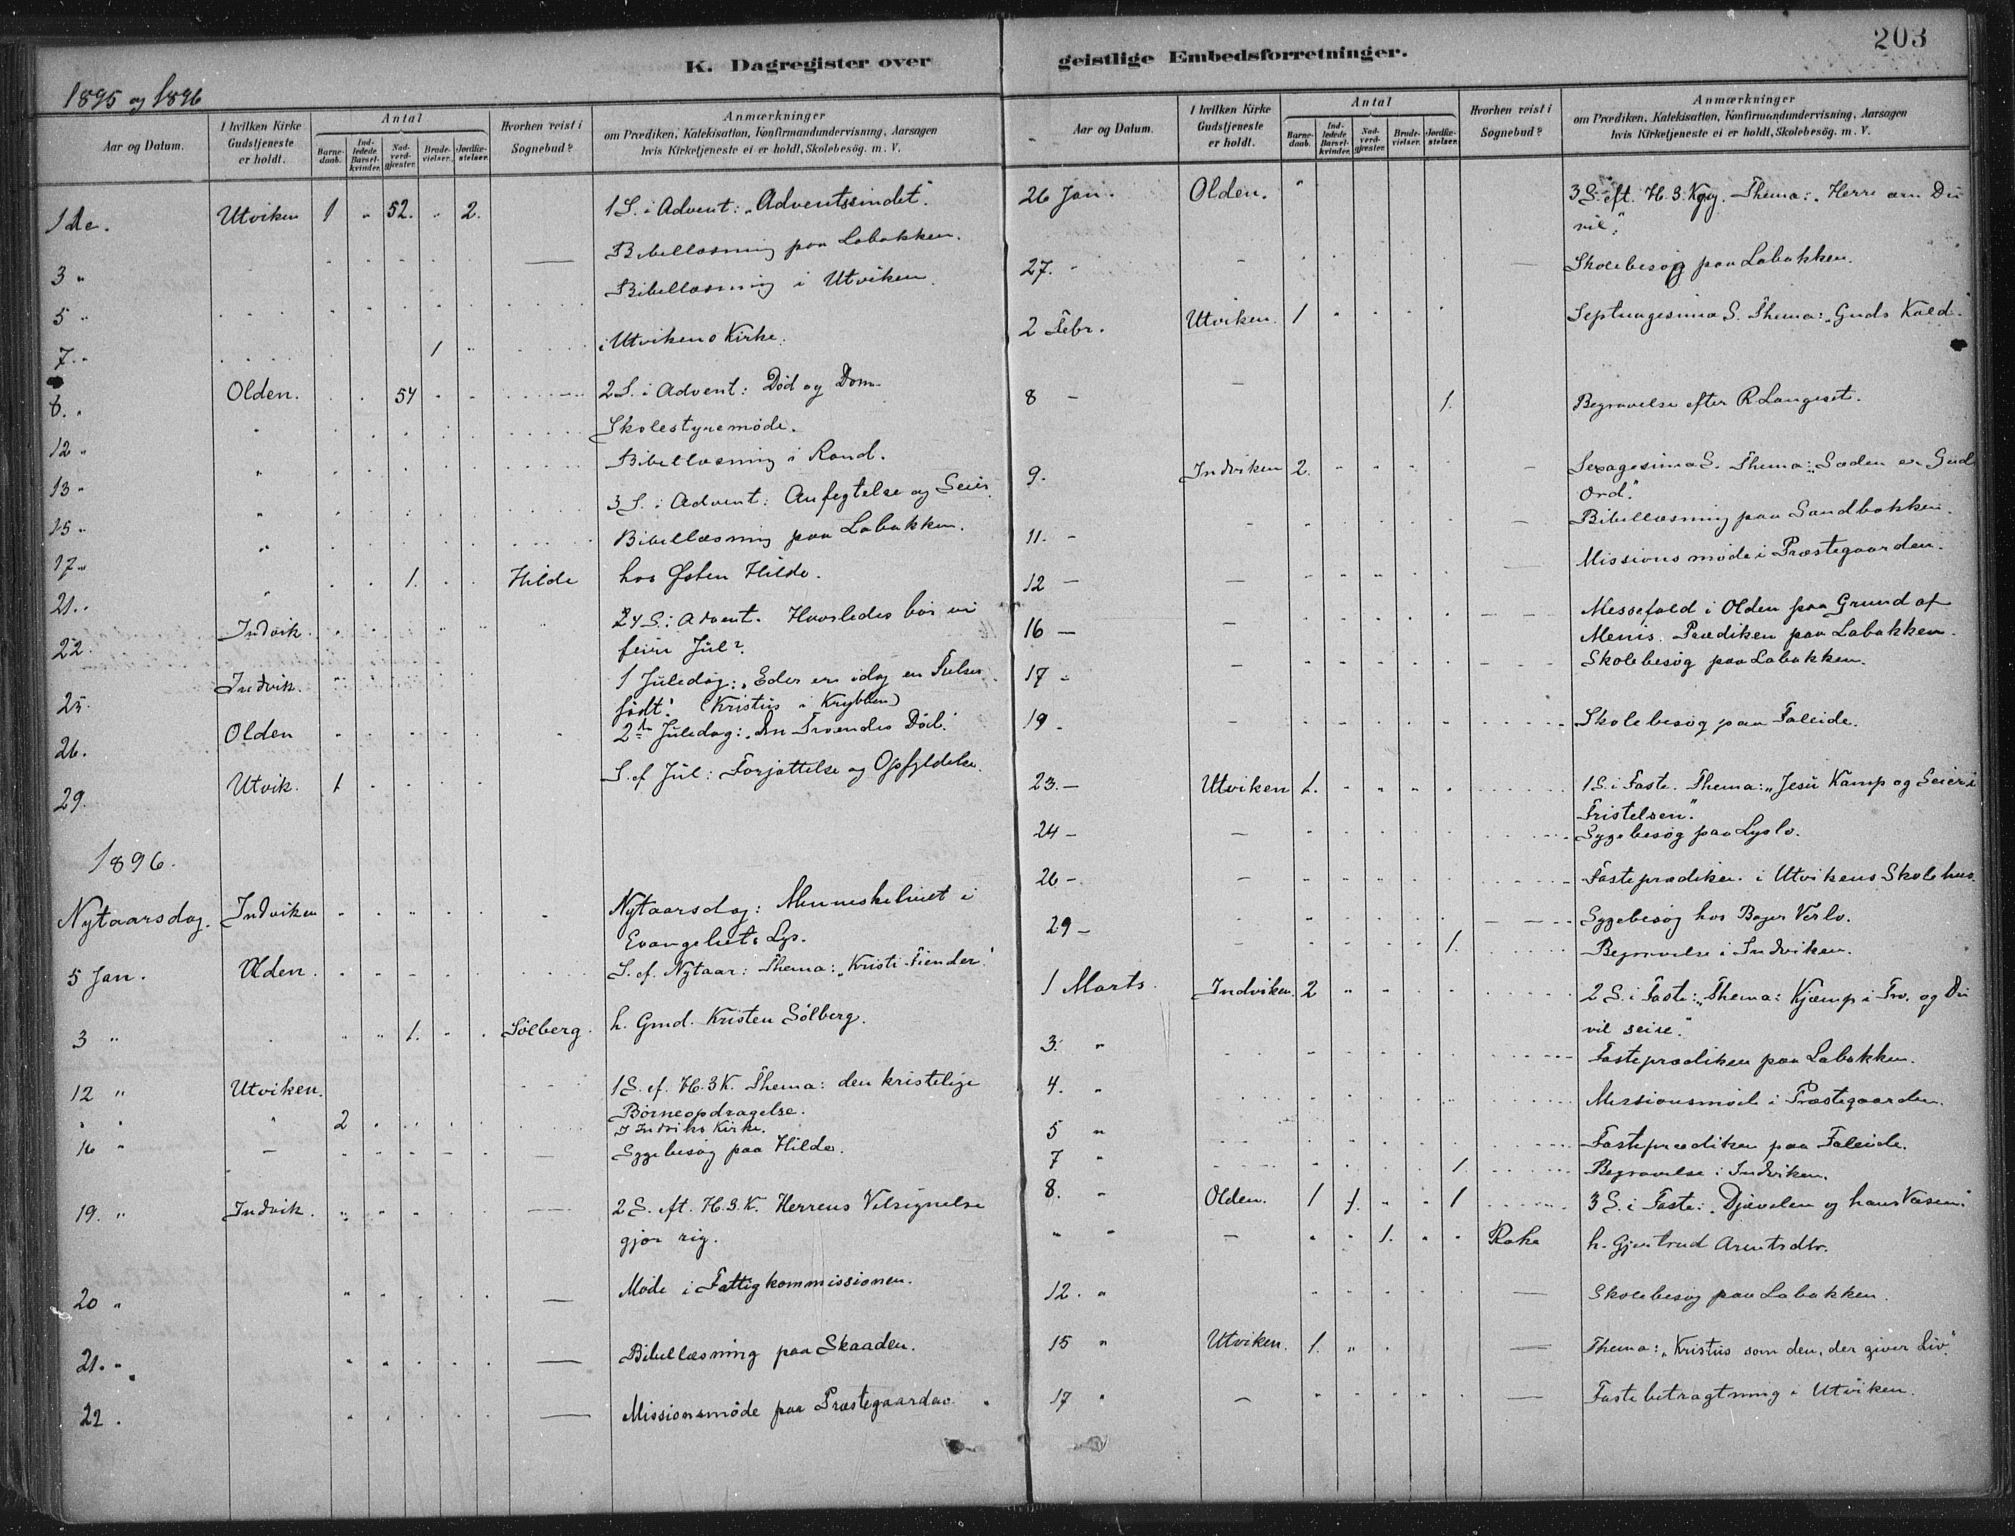 203
K. Dagregister over geistlige Embedsforretninger.
1895 og 1896
Aar og Datum. I hvilken Kirke Gudstjeneste er holdt. Antal Barnedaab. Indledede Barselkvinder. Nadverdgjæster. Brudevielser. Jordfæstelser. Hvorhen reist i Sognebud? Anmærkninger om Prædiken, Katekisation, Konfirmandundervisning, Aarsagen hvis Kirketjeneste ei er holdt, Skolebesøg. m. V.
1 De. Utviken 1 " 52. " 2. 1 S. i Advent: "Adventssindet".
3 " Bibellæsning paa Løbakken.
5 " Bibellæsning i Utviken.
7. " 1 i Utvikens Kirke.
8. " Olden. 54 2 S. i Advent: Død og Dom.
12 " Skolestyremøde.
13 " Bibellæsning i Rand.
15 " 3 S. i Advent: Anfegtelse og Seier.
17 " Bibellæsning paa Løbakken.
21. " 1. Hilde hos Østen Hilde.
22. Indvik. 4 S. i Advent. Hvorledes bør vi
feire Jul?
25. Indvik. 1 Juledag: "Eder er idag en Frelser
født". (Kristus i Krybben)
26. Olden 2den Juledag: "Den Troendes Død".
29. Utvik. 1 S. ef. Jul: Forjættelse og Opfyldelse.
1896.
Nytaarsdag. Indviken Nytaarsdag: Menneskelivet i
Evangeliets Lys.
5 Jan. Olden. S. ef. Nytaar: Thema: "Kristi Fiender".
3 " 1. Sølberg. h. Gmd. Kristen Sølberg.
12 " Utviken. 1 S. ef. H. 3 K. Thema: den kristelige
Børneopdragelse.
" " " 2 I Indviks Kirke.
16 " Sygebesøg paa Hilde.
19. " Indvik. 2 S. eft. H. 3. K. Herrens Velsignelse
gjør rig.
20 " Møde i Fattigkommissionen.
21. " Bibellæsning paa Skaaden.
22. Missionsmøde paa Præstegaarden.
Aar og Datum. I hvilken Kirke Gudstjeneste er holdt. Antal Barnedaab. Indledede Barselkvinder. Nadverdgjæster. Brudevielser. Jordfæstelser. Hvorhen reist i Sognebud? Anmærkninger om Prædiken, Katekisation, Konfirmandundervisning, Aarsagen hvis Kirketjeneste ei er holdt, Skolebesøg. m. V.
26 Jan. Olden. " 3 S. eft. H. 3. Kgg. Thema: "Herre om Du
vil".
27. " Skolebesøg paa Løbakken.
2 Febr. Utviken. 1 Septuagesima S. Thema: "Guds Kald".
8 – 1. Begravelse efter R Langeset.
9. Indviken 2. Sexagesima S. Thema: "Sæden er Guds
Ord".
11. – Bibellæsning paa Sandbakken.
12 – Missionsmøde i Præstegaarden.
16 – Messefald i Olden paa Grund af
Menis. Prædiken paa Løbakken.
17 – Skolebesøg paa Løbakken.
19. Skolebesøg paa Faleide.
23. – Utviken 1. 1 S. i Faste. Thema: "Jesu Kamp og Seier i
Fristelsen".
24 – Sygebesøg paa Lyslo.
26 – Fasteprædiken i Utvikens Skolehus.
29 – Sygebesøg hos Verlo.
1. Begravelse i Indviken.
1 Marts. Indviken. 2 2 S. i Faste: "Thema: Kjæmp i Tro, og Du
vil seire".
3. " Fasteprædiken paa Løbakken.
4. " Missionsmøde i Præstegaarden.
5 " Fasteprædiken paa Faleide.
7 " 1. Begravelse i Indviken.
8. " Olden. 1 1. 1 3 S. i Faste: "Djævelen og hans Væsen".
" " – 1. Rake h. Gjertrud Arentsdtr.
12. " Skolebesøg paa Løbakken.
15 " Utviken. 1. Thema: "Kristus som den, der giver Liv".
17 " – Fastebetragtning i Utviken.